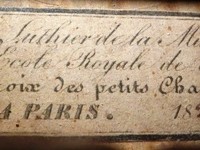 Luthier de la M
Ecole Royale de
roix des petits Cha
A PARIS. 18